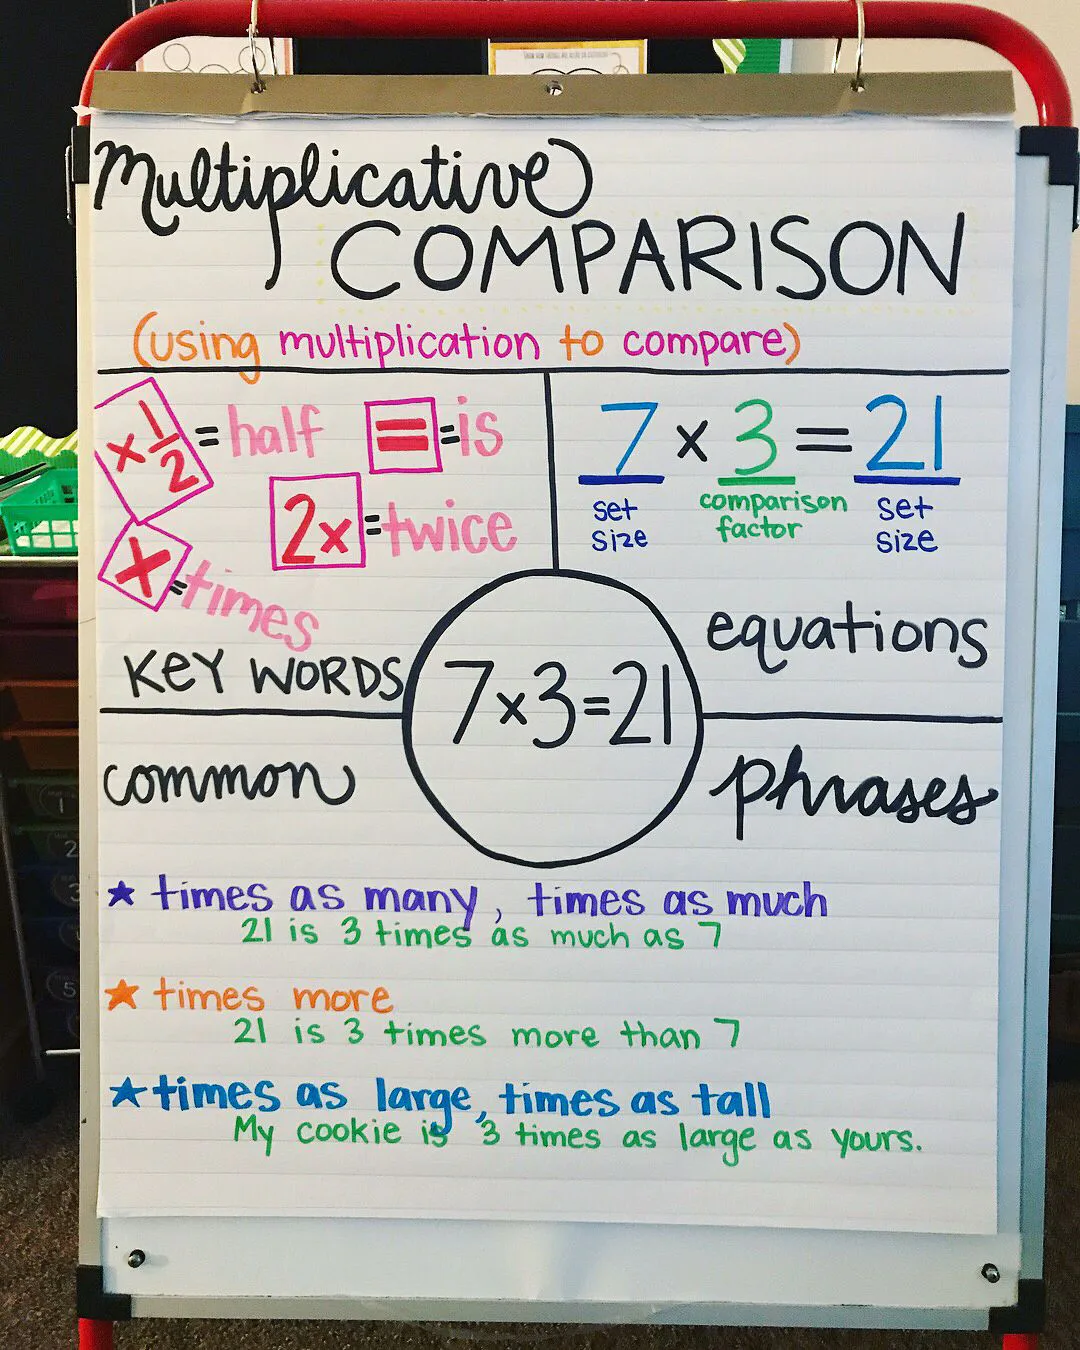 Multiplicative
COMPARISON
(using multiplication to compare)
×1/2 = half
= = is
2x = twice
x = times
KEY WORDS
7 x 3 = 21
set size
comparison factor
set size
equations
7x3=21
common
phrases
★ times as many, times as much
21 is 3 times as much as 7
★ times more
21 is 3 times more than 7
★ times as large, times as tall
My cookie is 3 times as large as yours.
1
2
3
5